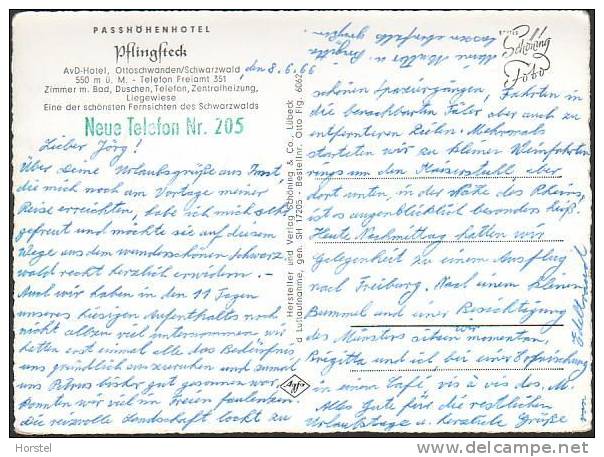 PASSHÖHENHOTEL
Pflingsteck
AvD-Hotel, Ottoschwanden/Schwarzwald
550 m ü. M. - Telefon Freiamt 351
Zimmer m. Bad, Duschen, Telefon, Zentralheizung,
Liegewiese
Eine der schönsten Fernsichten des Schwarzwalds
Neue Telefon Nr. 205
den 8.6.66
Lieber Jörg!
Über Deine Urlaubsgrüße aus
die mich noch am Vortage meiner
Reise erreichten, habe ich mich sehr
gefreut und möchte sie auf diesem
Wege aus dem wunderschönen Schwarz
wald recht herzlich erwidern. -
Auch wir haben in den 11 Tagen
unseres hiesigen Aufenthalts noch
nicht allzu viel unternommen, wir
hatten erst einmal alle das Bedürfnis,
uns gründlich auszuruhen und zumal
uns Petrus bisher gut gesonnen war,
konnten wir viel im Freien faulenzen.
Die reizvolle Landschaft lockt zu
Hersteller und Verlag Schöning & Co., Lübeck
Luftaufnahme, gen. SH 17205 - Bestellnr. Otto Flg. 6062
Agfa
Schöning
Foto
schönen Spaziergängen, Fahrten in
die benachbarten Täler aber auch zu
entfernteren Zielen. Mehrmals
starteten wir zu kleinen Weinfahrten
rings um den Kaiserstuhl, aber
dort unten, in der Nähe des Rheins,
ist es augenblicklich besonders heiß.
Heute Nachmittag hatten wir
Gelegenheit zu einem Ausflug
nach Freiburg. Nach einem kleinen
Bummel und einer Besichtigung
des Münsters sitzen wir momentan,
Brigitte und ich, bei einer Erfrischung
in einem Café, vis à vis des M.
Alles Gute für die restlichen
Urlaubstage u. herzliche Grüße
von
Meine Mutter u. Brigitte
lassen ebenfalls grüßen.
Horstel
delcampe.net